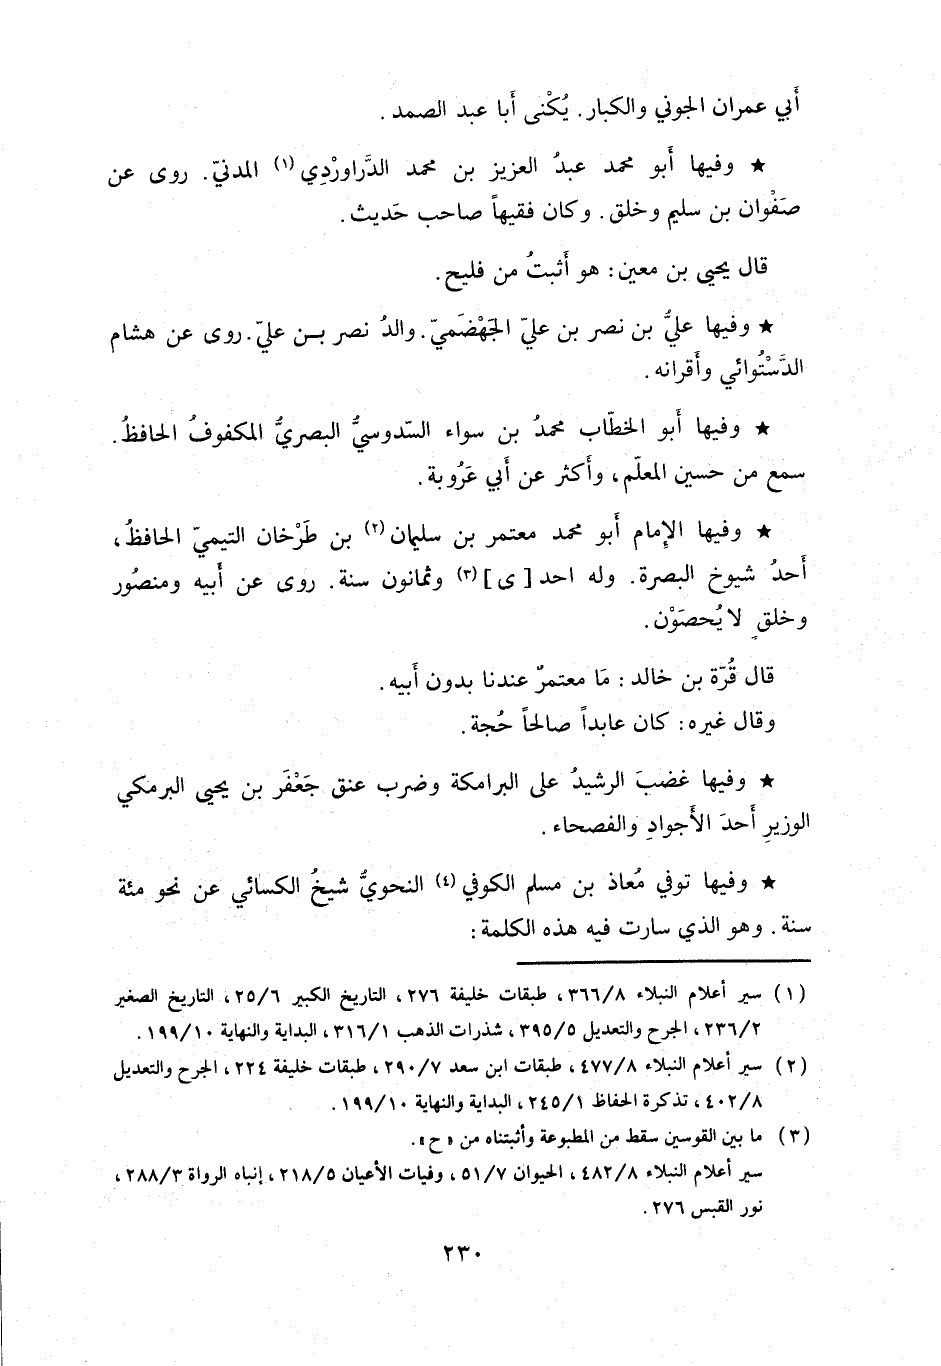 أَبي عمران الجوني والكبار. يُكْنى أَبا عبد الصمد.
★ وفيها أَبو محمد عبدُ العزيز بن محمد الدَّراورْدِي (١) المدنيّ. روى عن
صَفْوان بن سليم وخلق. وكان فقيهاً صاحب حَديث.
قال يحيى بن معين: هو أَثبتُ من فليح.
★ وفيها عليُّ بن نصر بن عليّ الجَهْضَميّ. والدُ نصر بن عليّ. روى عن هشام
الدَّسْتُوائي وأَقرانه.
★ وفيها أَبو الخطّاب محمدُ بن سواء السّدوسيُّ البصريُّ المكفوفُ الحافظُ.
سمع من حسين المعلّم، وأَكثر عن أَبي عَرُوبة.
★ وفيها الإِمام أَبو محمد معتمر بن سليمان (٢) بن طَرْخان التيميّ الحافظُ،
أَحدُ شيوخ البصرة. وله احد [ى] (٣) وثمانون سنة. روى عن أَبيه ومنصُور
وخلقٍ لا يُحصَوْن.
قال قُرّة بن خالد: مَا معتمرٌ عندنا بدون أَبيه.
وقال غيره: كان عابداً صالحاً حُجة.
★ وفيها غضبَ الرشيدُ على البرامكة وضرب عنق جَعْفَر بن يحيى البرمكي
الوزيرِ أَحدَ الأَجوادِ والفصحاء.
★ وفيها توفي مُعاذ بن مسلم الكوفي (٤) النحويُّ شيخُ الكسائي عن نحو مئة
سنة. وهو الذي سارت فيه هذه الكلمة:
(١) سير أعلام النبلاء ٣٦٦/٨، طبقات خليفة ٢٧٦، التاريخ الكبير ٢٥/٦، التاريخ الصغير
٢٣٦/٢، الجرح والتعديل ٣٩٥/٥، شذرات الذهب ٣١٦/١، البداية والنهاية ١٩٩/١٠.
(٢) سير أعلام النبلاء ٤٧٧/٨، طبقات ابن سعد ٢٩٠/٧، طبقات خليفة ٢٢٤، الجرح والتعديل
٤٠٢/٨، تذكرة الحفاظ ٢٤٥/١، البداية والنهاية ١٩٩/١٠.
(٣) ما بين القوسين سقط من المطبوعة وأثبتناه من «ح».
سير أعلام النبلاء ٤٨٢/٨، الحيوان ٥١/٧، وفيات الأعيان ٢١٨/٥، إنباه الرواة ٢٨٨/٣،
نور القبس ٢٧٦.
٢٣٠